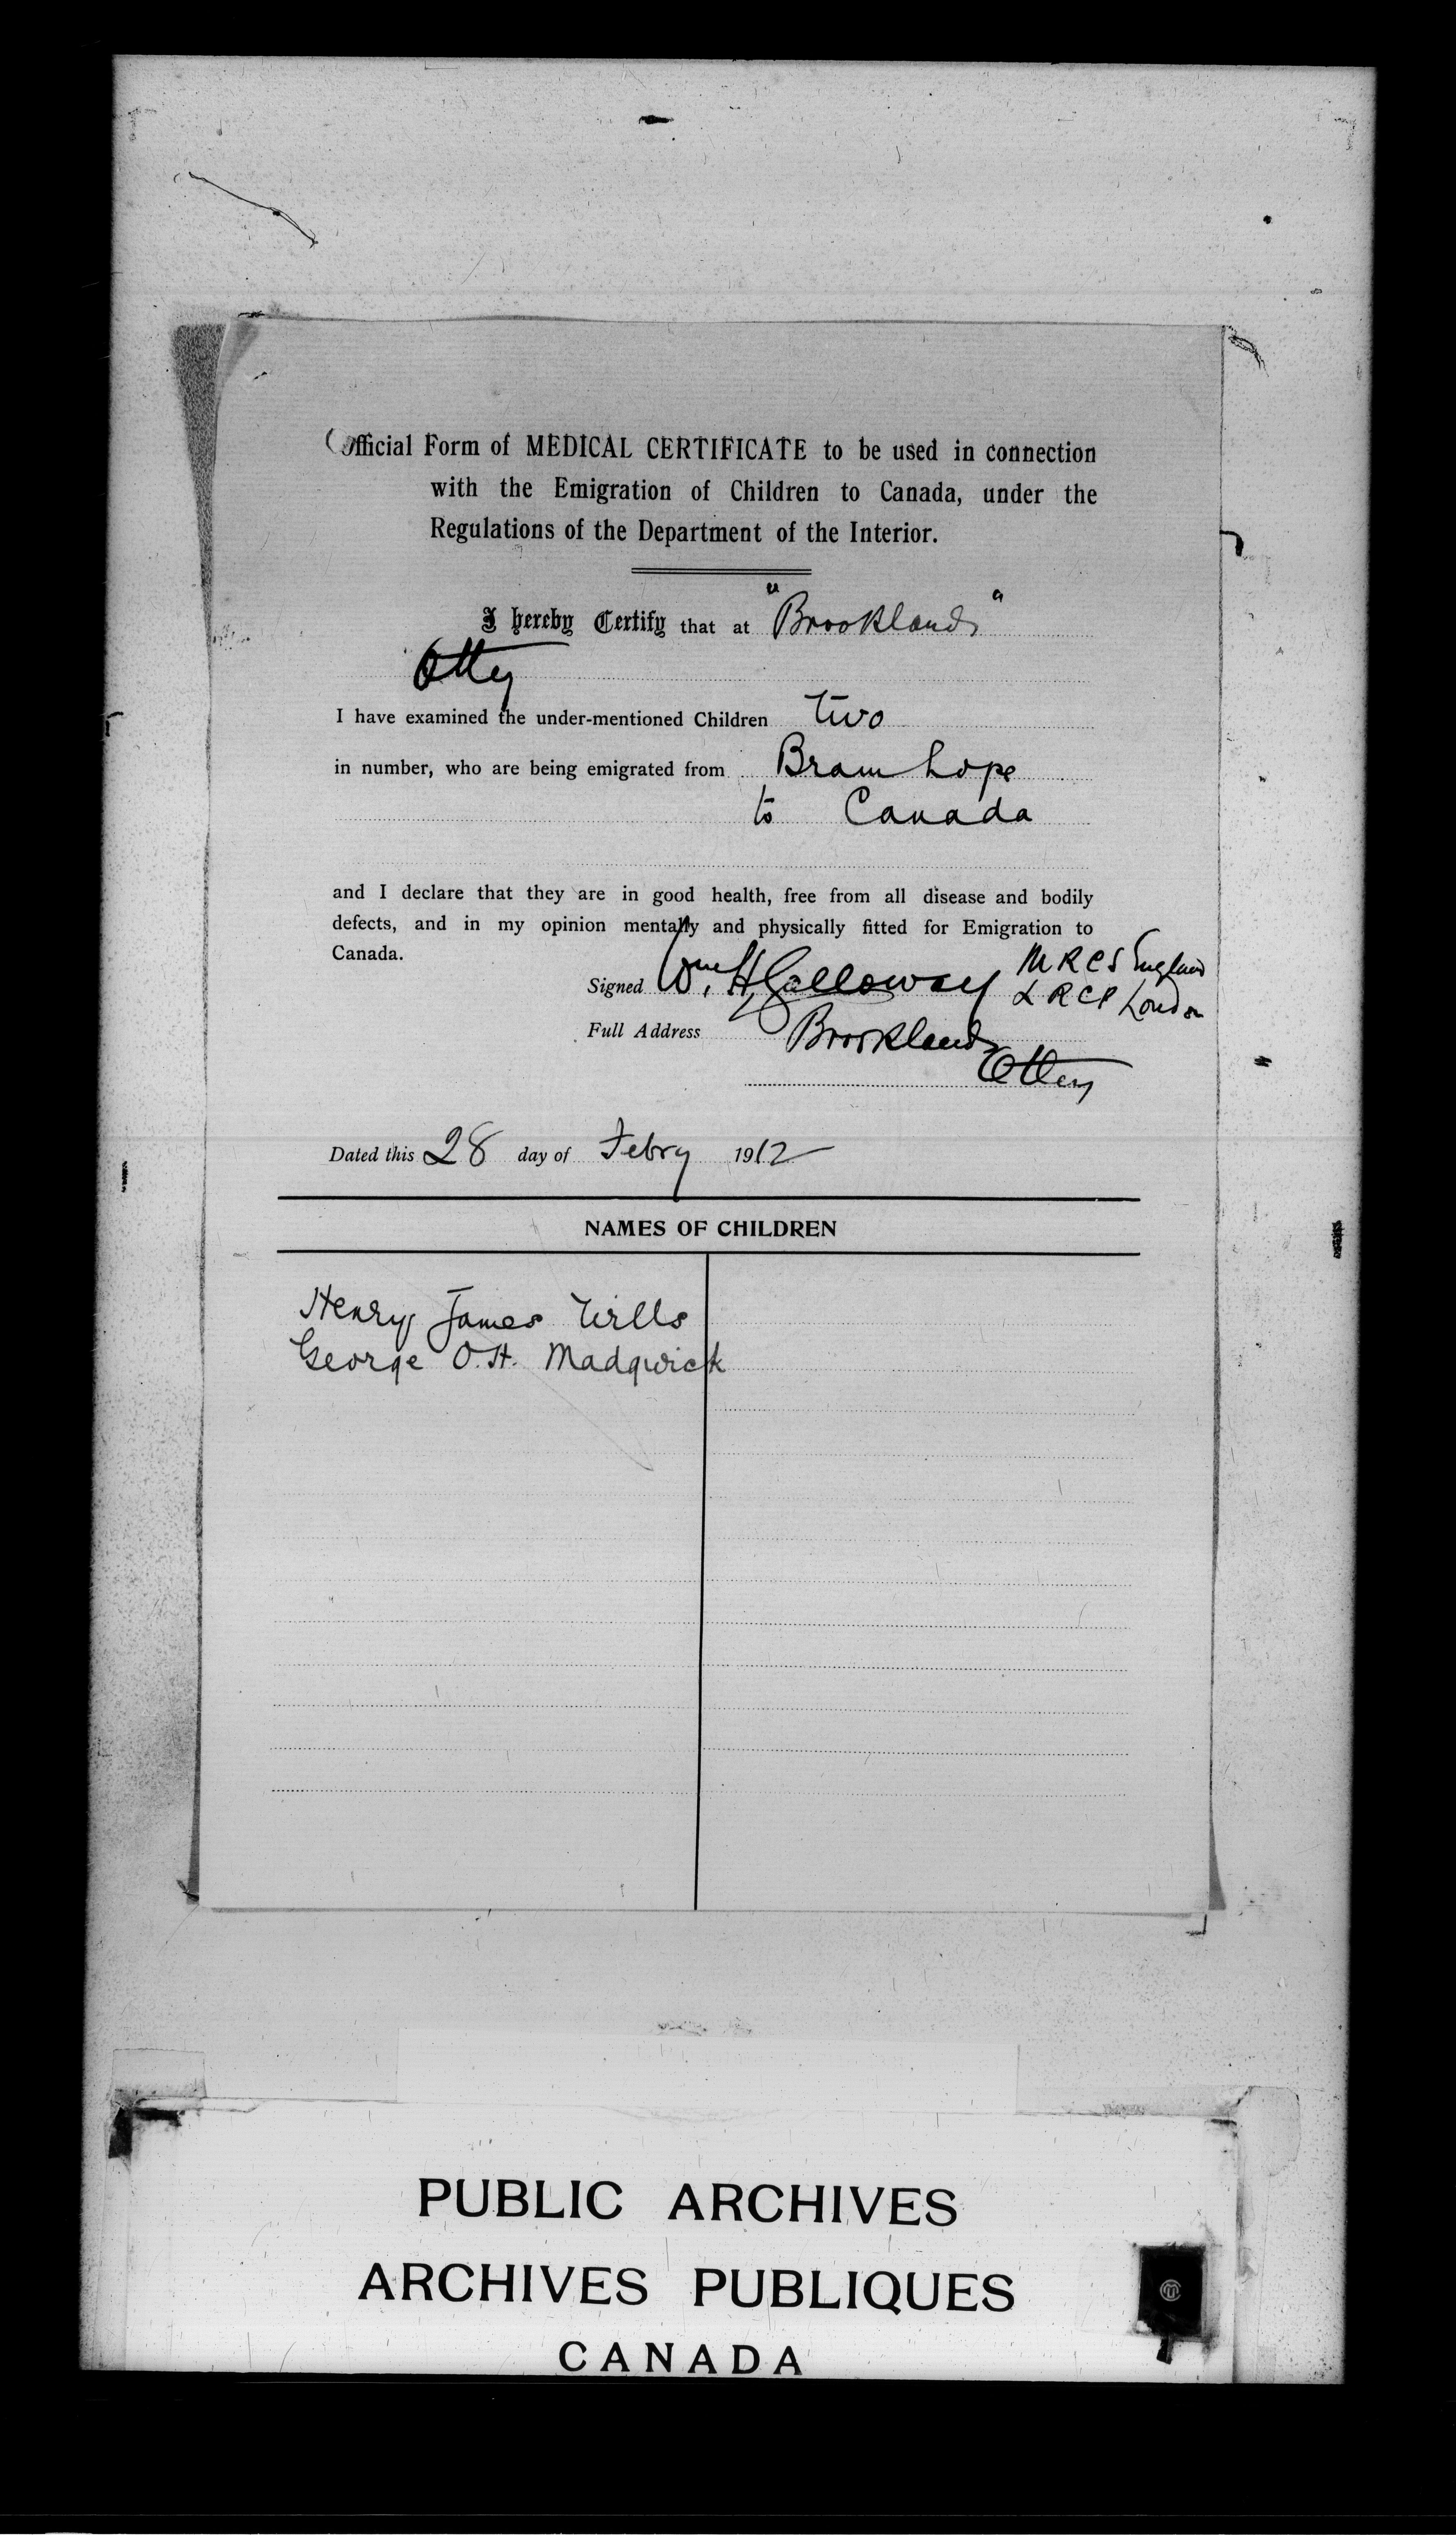 Official Form of MEDICAL CERTIFICATE to be used in connection
with the Emigration of Children to Canada, under the
Regulations of the Department of the Interior.
I hereby Certify that at "Brooklands"
Otley
I have examined the under-mentioned Children two
in number, who are being emigrated from Bramhope
to Canada
and I declare that they are in good health, free from all disease and bodily
defects, and in my opinion mentally and physically fitted for Emigration to
Canada.
Signed Wm. H. Galloway MRCS England
LRCP London
Full Address Brooklands
Otley
Dated this 28 day of Febry 1912
NAMES OF CHILDREN
Henry James
George O.H. Madgwick
PUBLIC ARCHIVES
ARCHIVES PUBLIQUES
CANADA